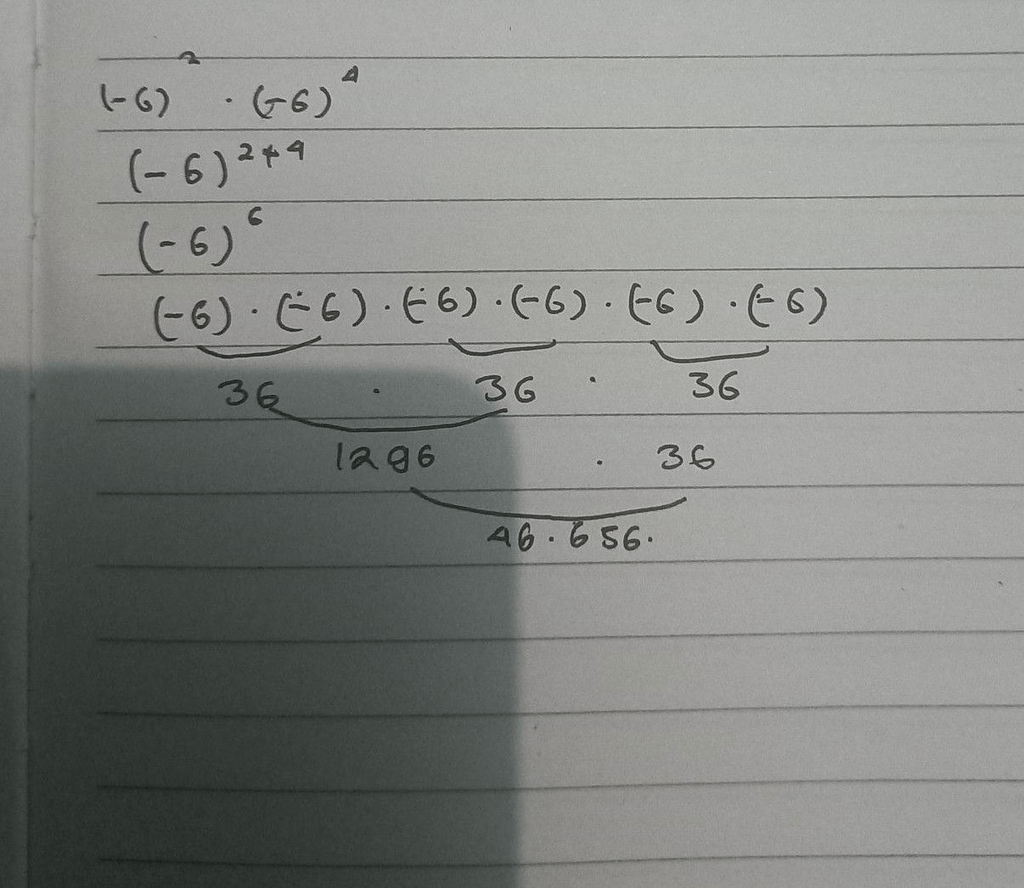 (-6)² · (-6)⁴
(-6)²⁺⁴
(-6)⁶
(-6) · (-6) · (-6) · (-6) · (-6) · (-6)
36 · 36 · 36
1296 · 36
46.656.